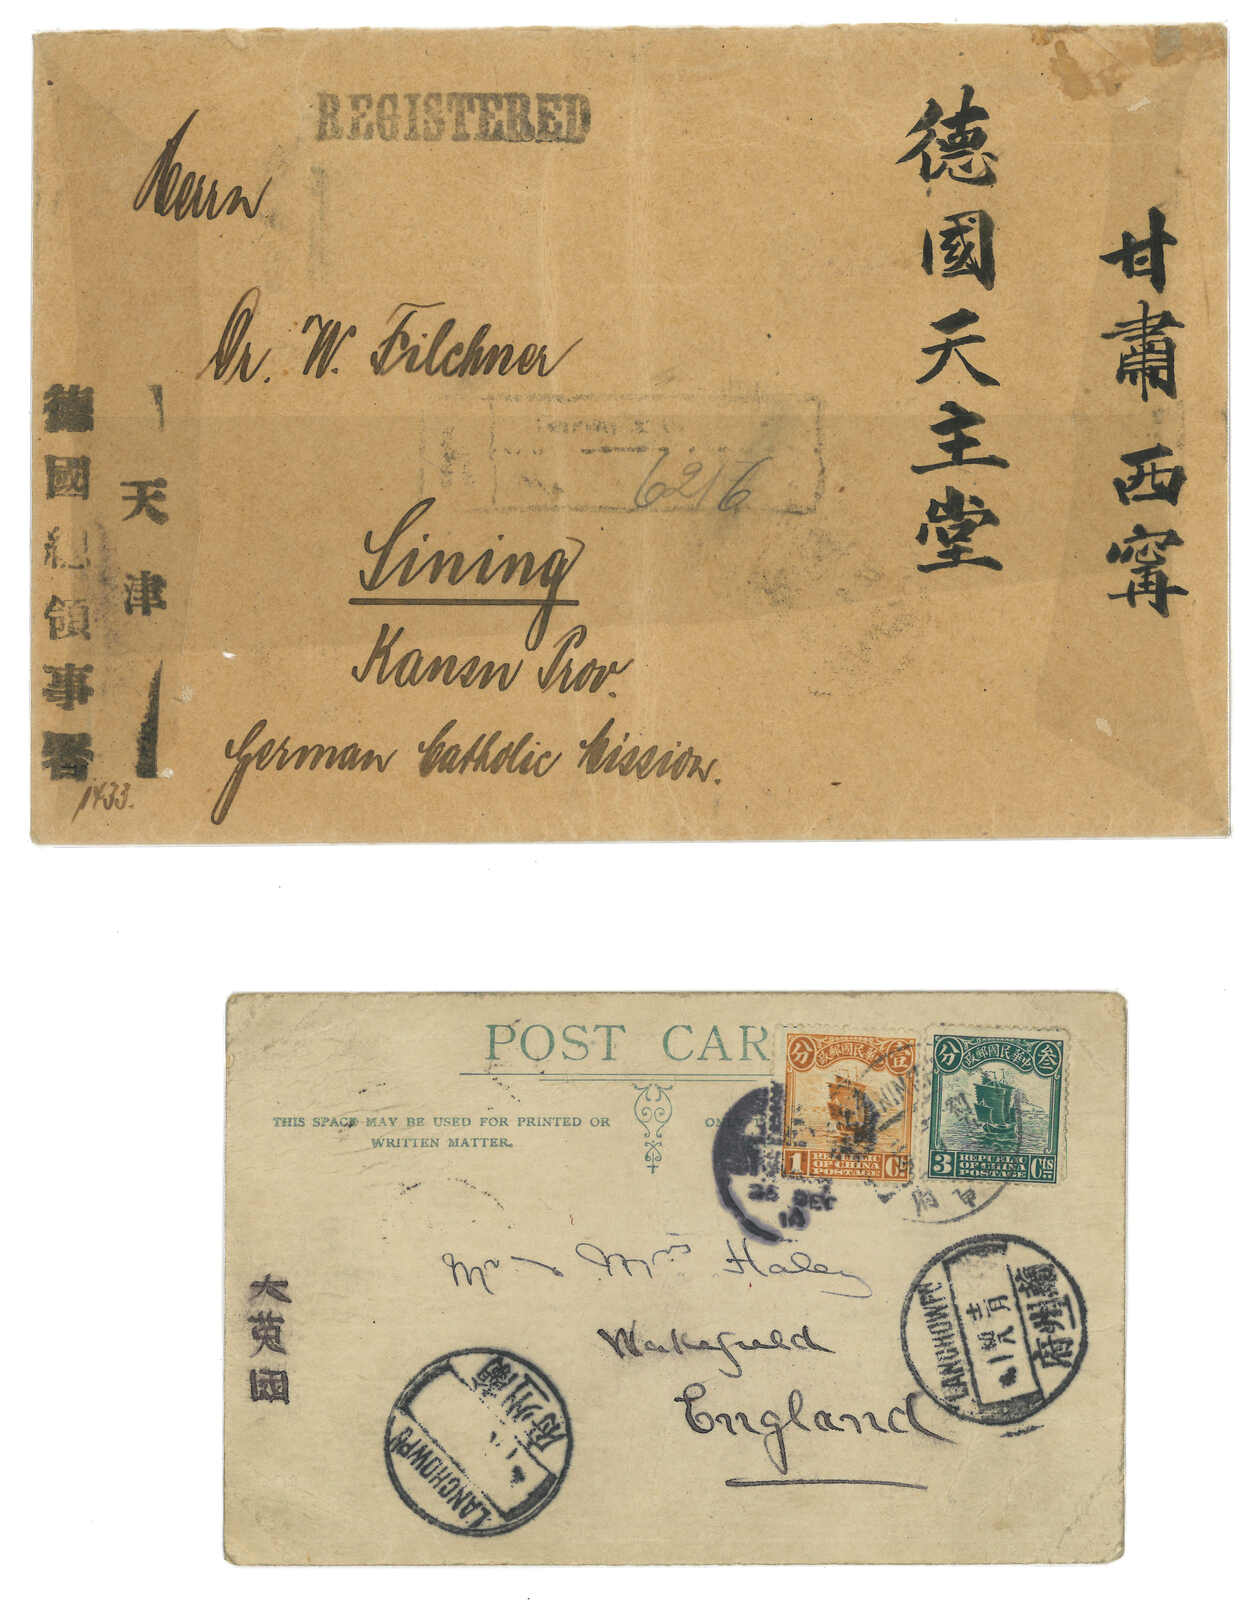 REGISTERED
Herrn
Dr. W. Filchner
6216
Sining
Kansu Prov.
German Catholic Mission.
甘肅西寧
德國天主堂
天津
德國總領事署
1433.
POST CAR
THIS SPACE MAY BE USED FOR PRINTED OR
WRITTEN MATTER.
分 政郵國民華中 壹
1 REPUBLIC OF CHINA POSTAGE Ct
分 政郵國民華中 叁
3 REPUBLIC OF CHINA POSTAGE Cts
26 DEC
10
Mr & Mrs Haley
Wakefield
England
大英國
LANCHOWFU
府州蘭
LANCHOWFU
府州蘭